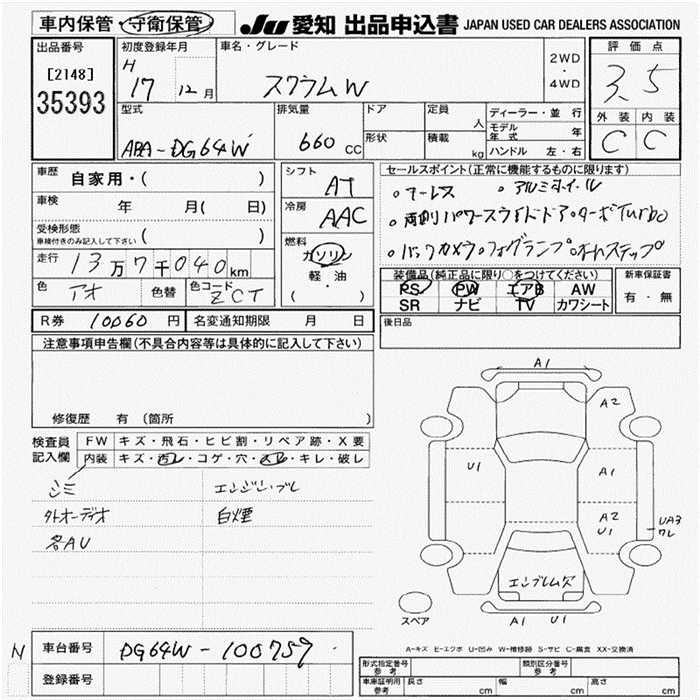 車内保管・守衛保管
JU 愛知 出品申込書 JAPAN USED CAR DEALERS ASSOCIATION
出品番号
[2148]
35393
初度登録年月
H 17 12月
車名・グレード
スクラムW
2WD
・
4WD
評価点
3.5
外装 内装
C C
型式
ABA-DG64W
排気量
660 cc
ドア
形状
定員 人
積載 kg
ディーラー・並行
モデル年式 年
ハンドル 左・右
車歴 自家用・( )
車検 年 月( 日)
受検形態
車検付きのみ記入して下さい ( )
走行 13万7千040km
色 アオ 色替 色コード ZCT
シフト AT
冷房 AAC
燃料
ガソリン
軽・油
( )
セールスポイント(正常に機能するものに限ります)
。キーレス 。アルミホイール
。両側パワースライドドア。ターボTurbo
。バックカメラ。フォグランプ。オートステップ
装備品(純正品に限り○をつけてください)
PS PW エアB AW
SR ナビ TV カワシート
新車保証書
有・無
R券 10060円 名変通知期限 月 日
後日品
注意事項申告欄(不具合内容等は具体的に記入して下さい)
修復歴 有 (箇所 )
検査員
記入欄
FW キズ・飛石・ヒビ割・リペア跡・X要
内装 キズ・汚レ・コゲ・穴・スレ・キレ・破レ
シミ エンジンブレ
外オーディオ 白煙
各AU
A1
A2
U1
A1
A2
U1
UA3
ワレ
エンブレム欠
スペア
A1 U1
A-キズ E-エクボ U-凹み W-補修跡 S-サビ C-腐食 XX-交換済
N
車台番号 DG64W-100759
登録番号
形式指定番号
参考
類別区分番号
車庫証明用
参考
長さ cm 幅 cm 高さ cm